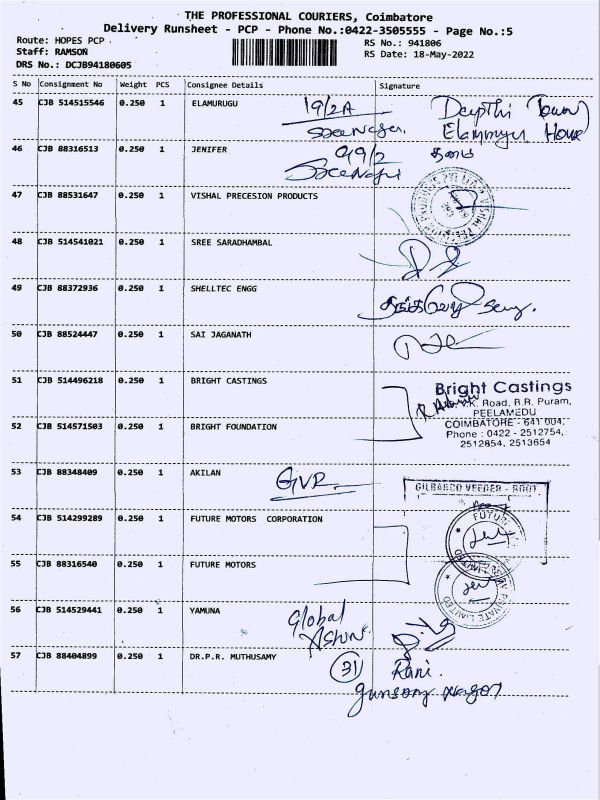 THE PROFESSIONAL COURIERS, Coimbatore
Delivery Runsheet - PCP - Phone No.:0422-3505555 - Page No.:5
Route: HOPES PCP
Staff: RAMSON
DRS No.: DCJB94180605
RS No.: 941806
RS Date: 18-May-2022
S No Consignment No Weight PCS Consignee Details Signature
45 CJB 514515546 0.250 1 ELAMURUGU 19/2A
46 CJB 88316513 0.250 1 JENIFER 99/2
47 CJB 88531647 0.250 1 VISHAL PRECESION PRODUCTS
48 CJB 514541021 0.250 1 SREE SARADHAMBAL
49 CJB 88372936 0.250 1 SHELLTEC ENGG
50 CJB 88524447 0.250 1 SAI JAGANATH
51 CJB 514496218 0.250 1 BRIGHT CASTINGS
Bright Castings
Road, R.R. Puram,
PEELAMEDU
COIMBATORE - 641 004.
Phone : 0422 - 2512754,
2512854, 2513654
52 CJB 514571503 0.250 1 BRIGHT FOUNDATION
53 CJB 88348409 0.250 1 AKILAN GVR
GILBARCO VEEDER - ROOT
54 CJB 514299289 0.250 1 FUTURE MOTORS CORPORATION
55 CJB 88316540 0.250 1 FUTURE MOTORS
56 CJB 514529441 0.250 1 YAMUNA Global
57 CJB 88404899 0.250 1 DR.P.R. MUTHUSAMY 31 Rani